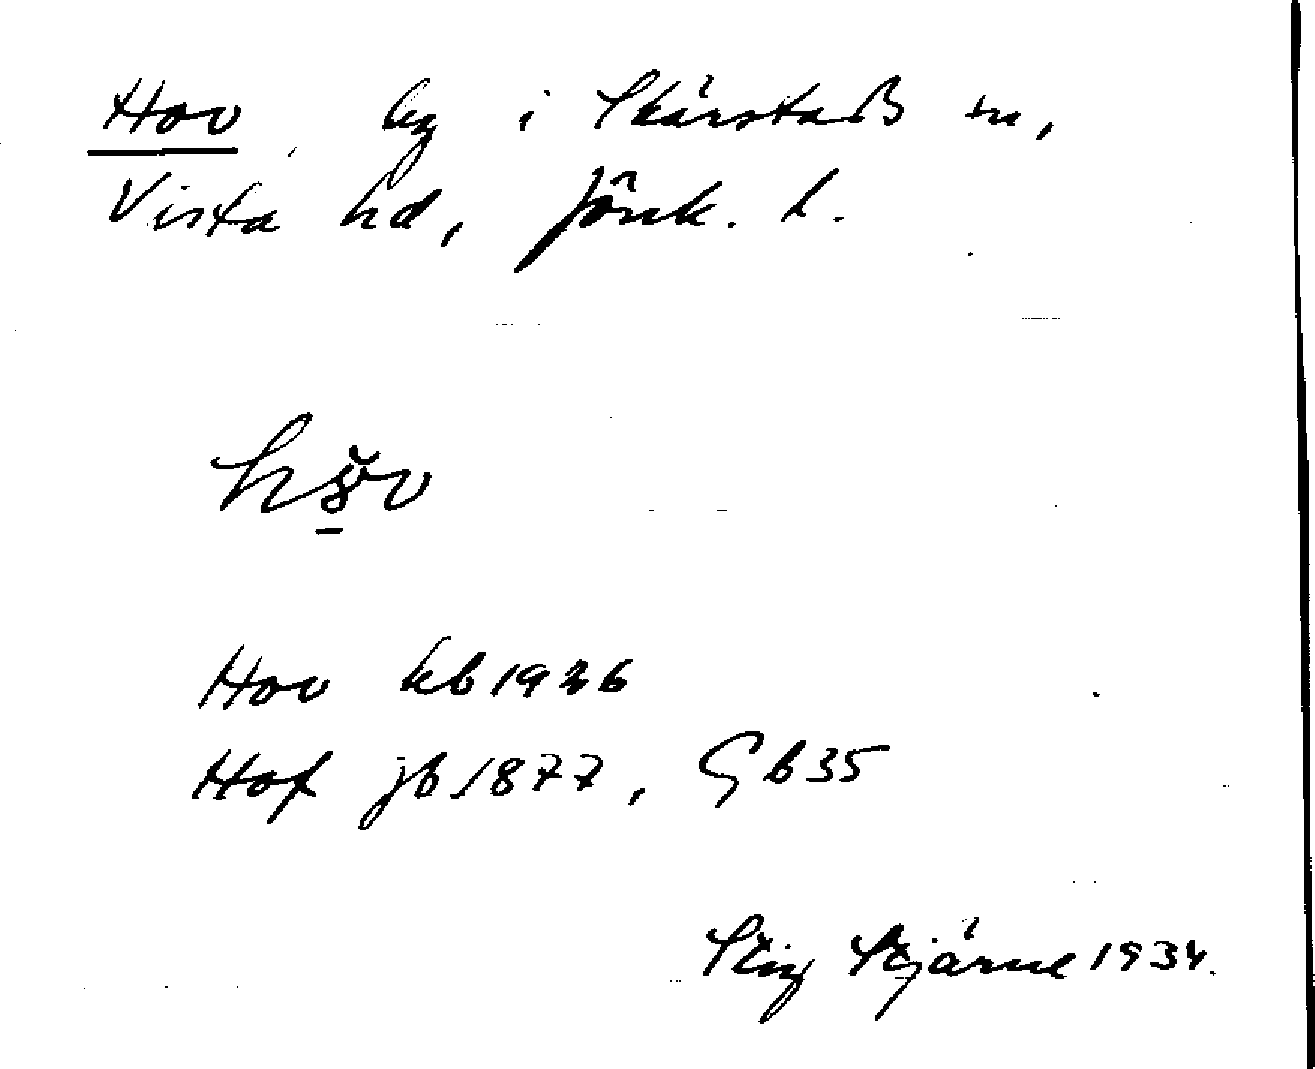 Hov, by i Skärstads sn,
Vista hd, Jönk. l.
Hov kb 1926
Hof jb 1877, Gb 35
Stig Stjärne 1934.